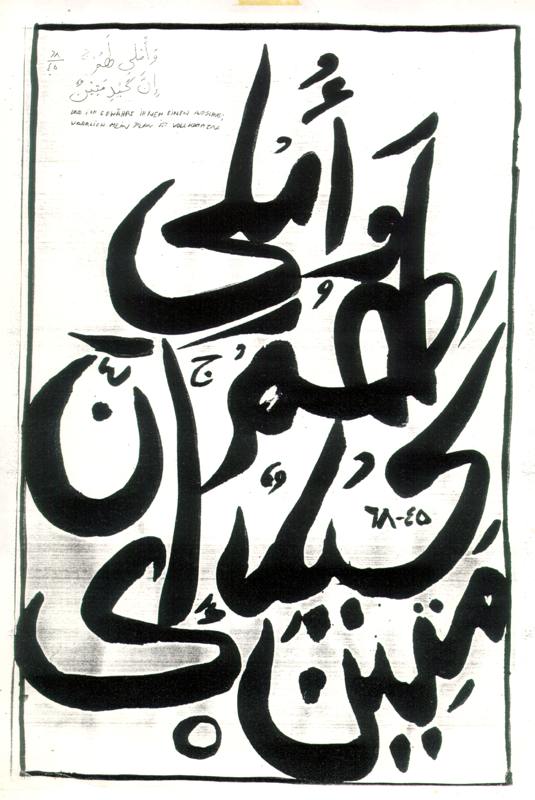 ٦٨
٤٥
وَأُمْلِي لَهُمْ ج
إِنَّ كَيْدِي مَتِينٌ
UND ICH GEWÄHRE IHNEN EINEN AUFSCHUB;
WAHRLICH MEIN PLAN IST VOLLKOMMEN
وَأُمْلِي
لَهُمْ ج إِنَّ
كَيْدِي
٦٨-٤٥
مَتِينٌ